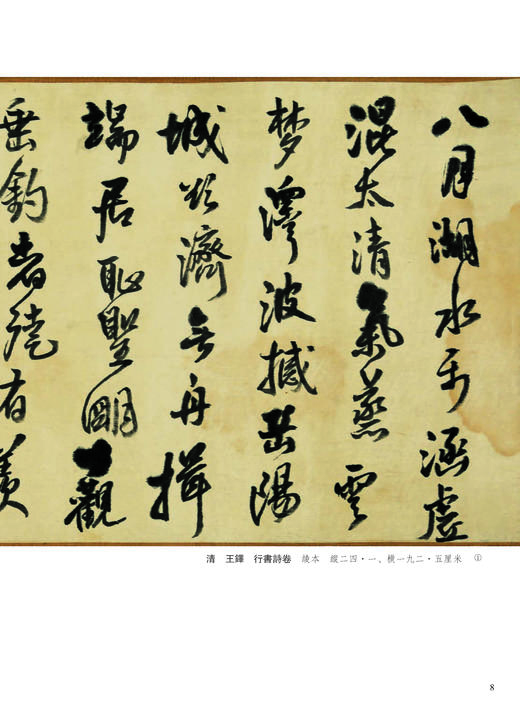 八月湖水平涵虛
混太清氣蒸雲
梦澤波撼岳陽
城欲濟無舟楫
端居耻聖明坐觀
垂釣者徒有羨
清　王鐸　行書詩卷　綾本　縱二四·一、橫一九二·五厘米　①
8